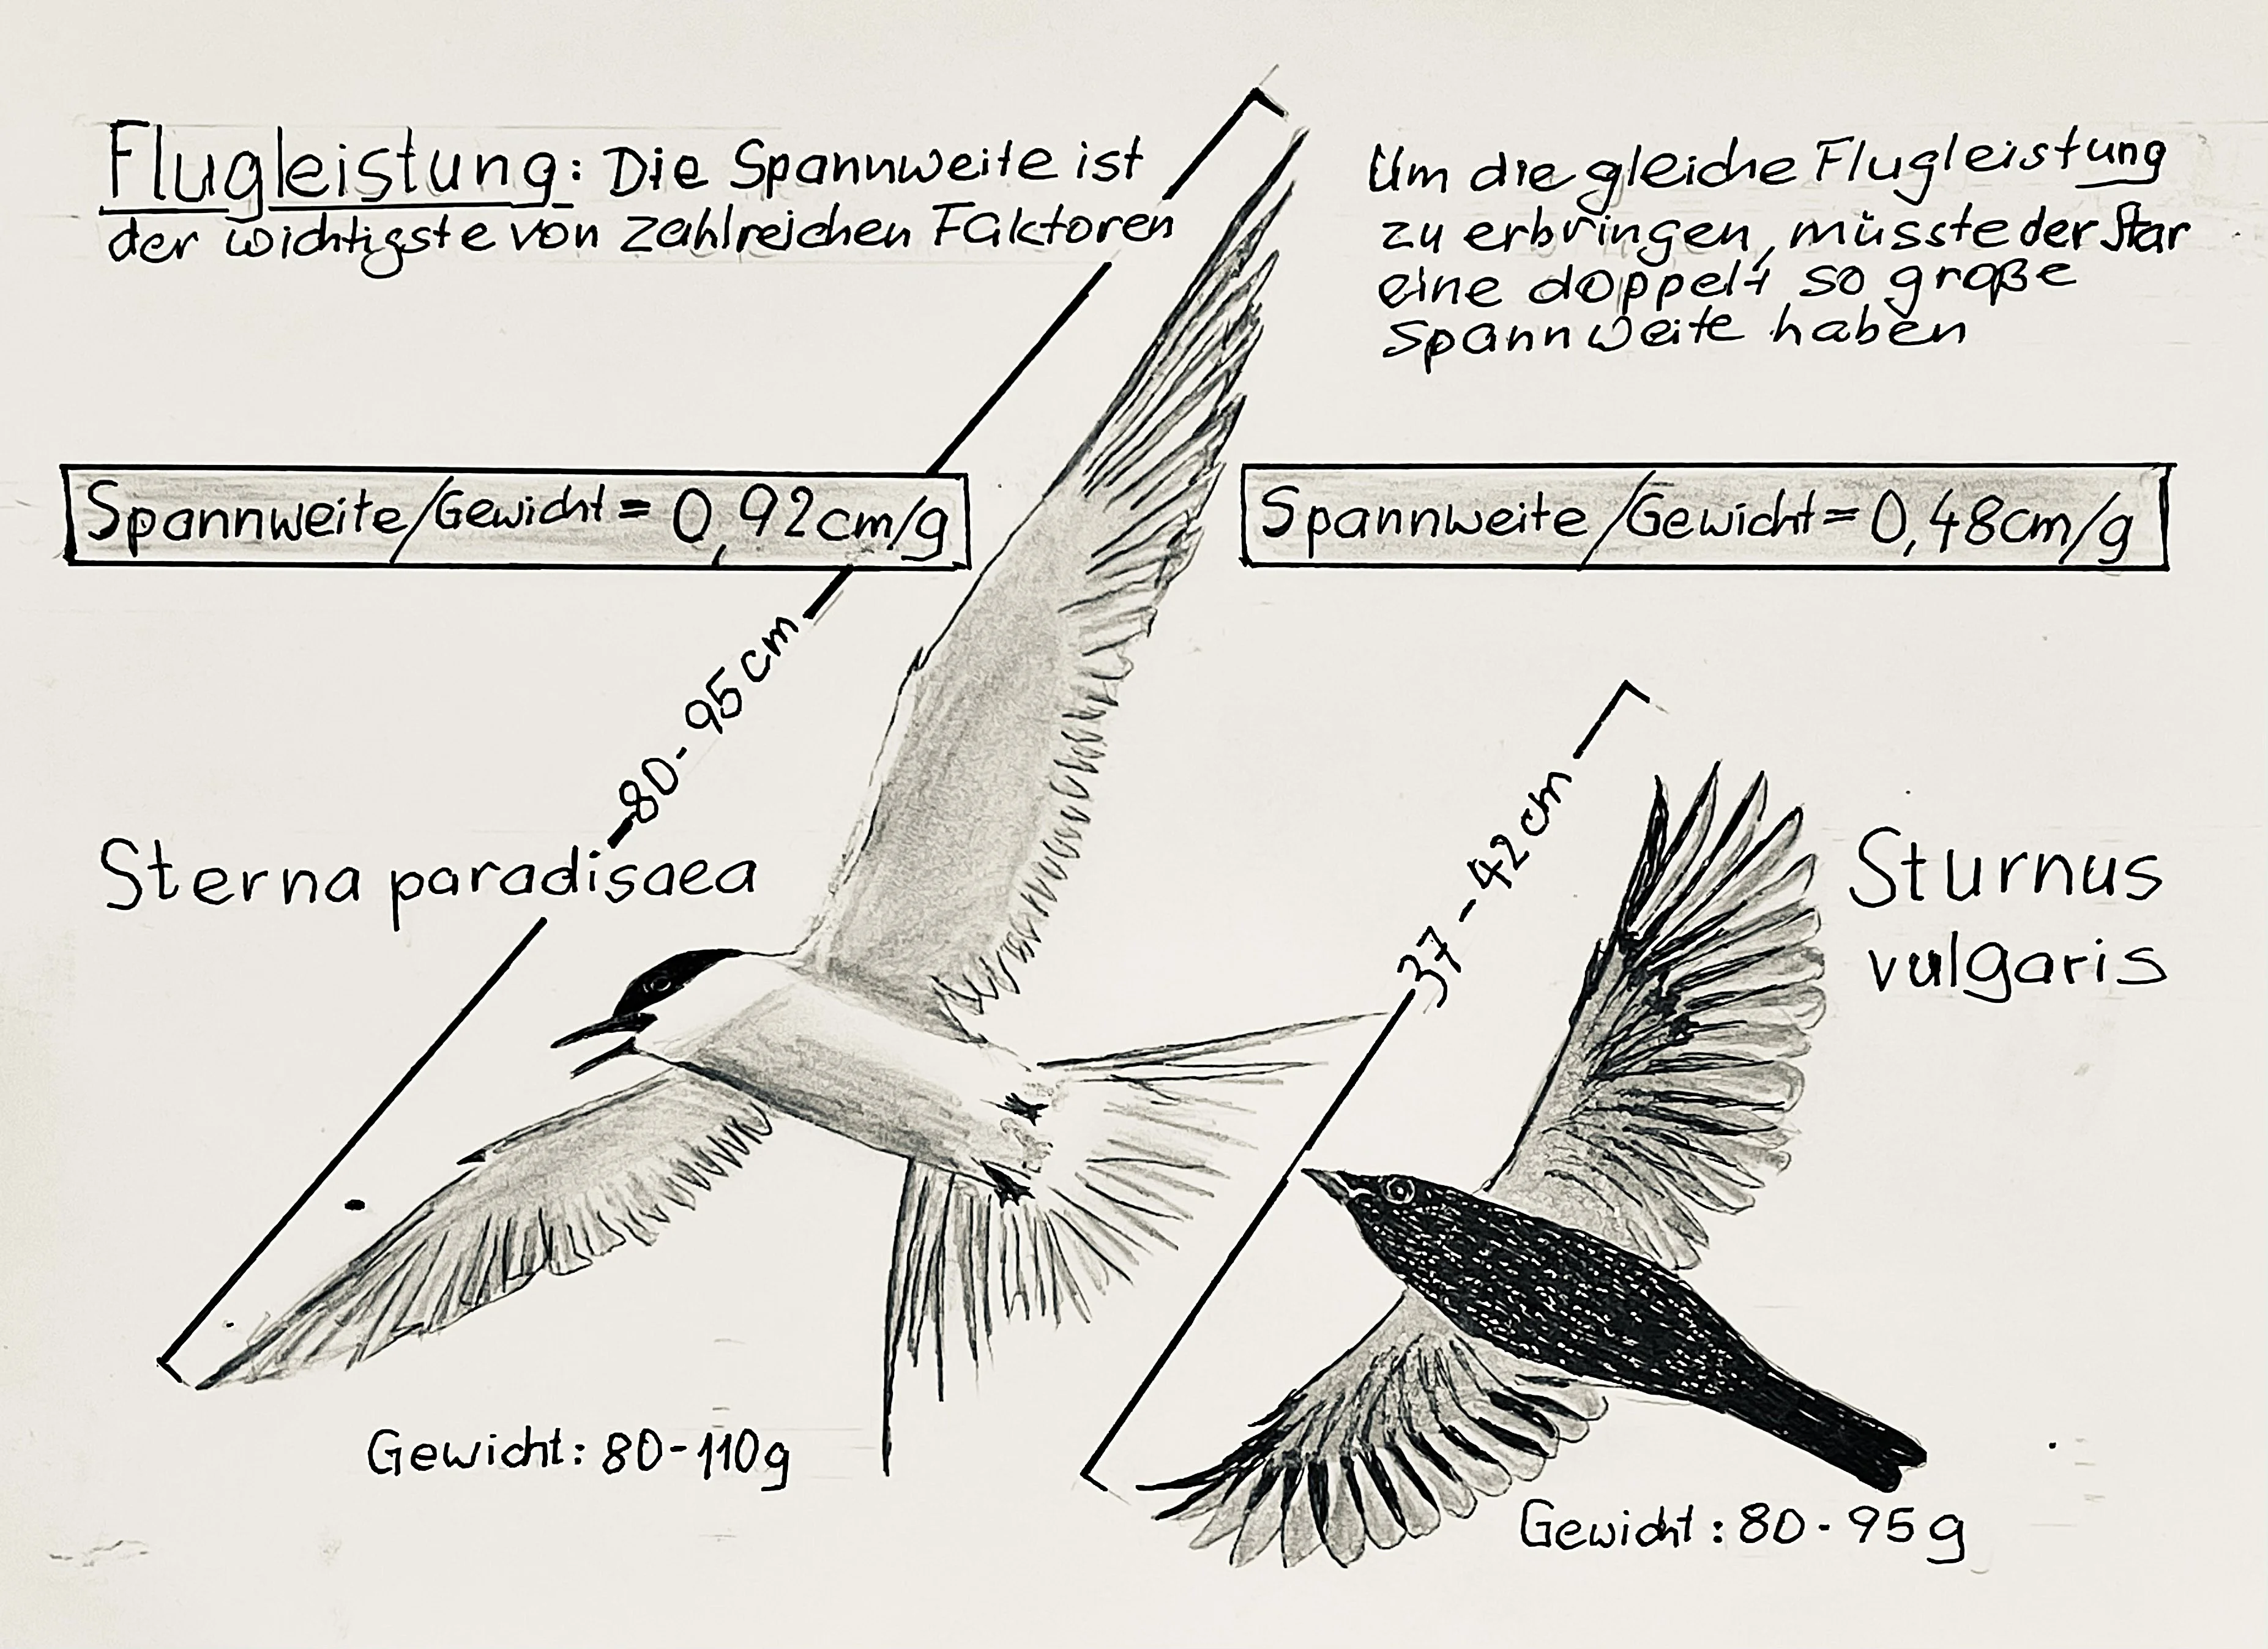 Flugleistung: Die Spannweite ist
der wichtigste von zahlreichen Faktoren
Um die gleiche Flugleistung
zu erbringen, müsste der Star
eine doppelt so große
Spannweite haben
Spannweite/Gewicht = 0,92cm/g
Spannweite/Gewicht = 0,48cm/g
80-95cm
37-42cm
Sterna paradisaea
Sturnus
vulgaris
Gewicht: 80-110g
Gewicht: 80-95g